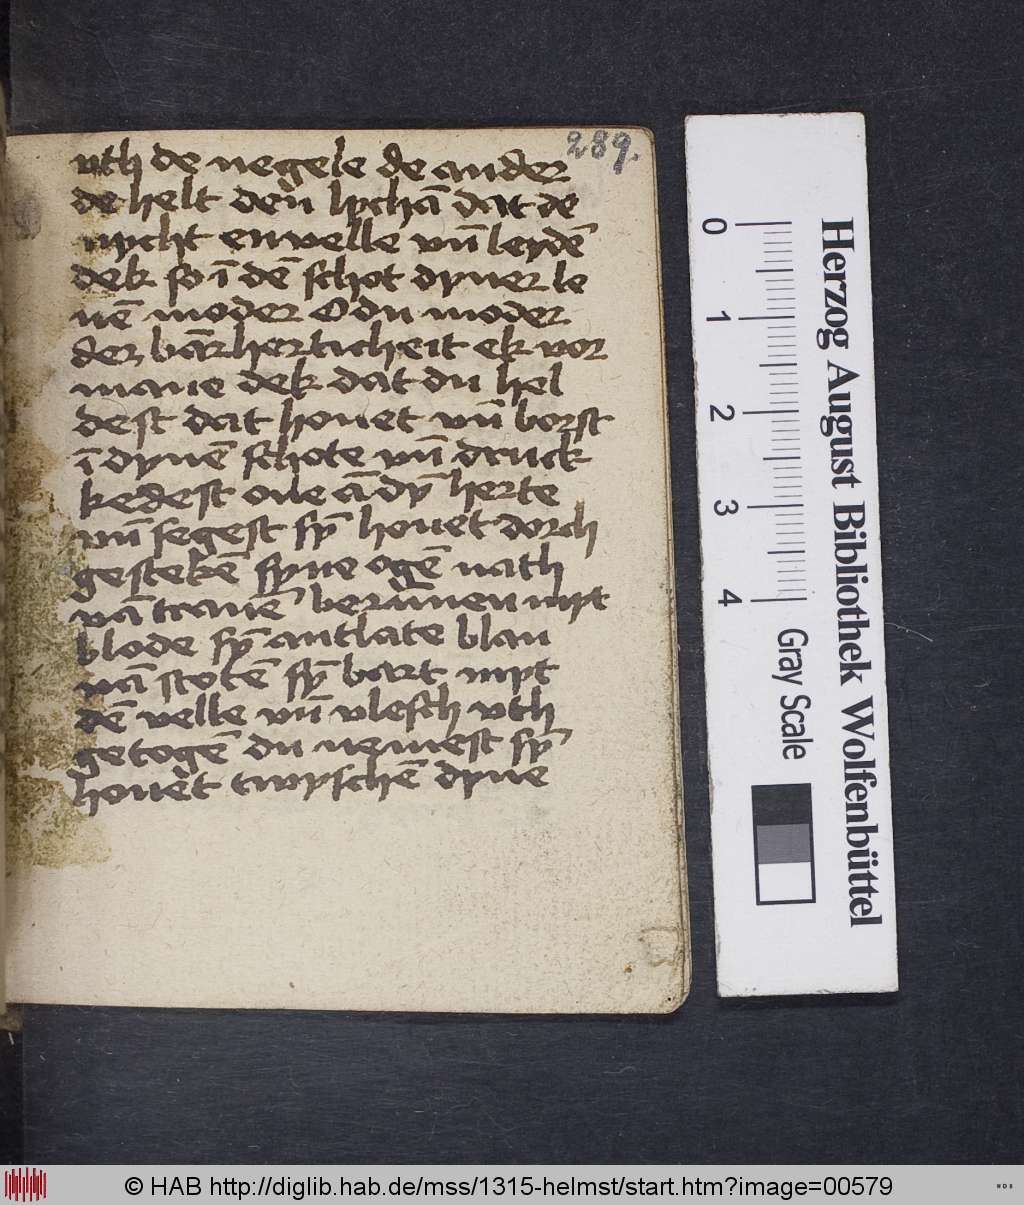 289.
uth de negele de ander
de helt den lychā dat de
nycht envelle vn̄ leydē
dek so ī dē schot dyner le
uē moder O du moder
der bārherticheit ek vor
mane dek dat du hel
dest dat houet vn̄ borst
ī dynē schote vn̄ druck
kedest one ā dȳ herte
vn̄ segest sȳ houet dorch
gestekē syne ogē nath
vā tranē berunnen myt
blode sȳ antlate blau
vā stotē sȳ bart myt
dē velle vn̄ vlesch vth
getogē du nemest sȳ
houet twyschē dyne
0
1
2
3
4
Gray Scale
Herzog August Bibliothek Wolfenbüttel
© HAB http://diglib.hab.de/mss/1315-helmst/start.htm?image=00579